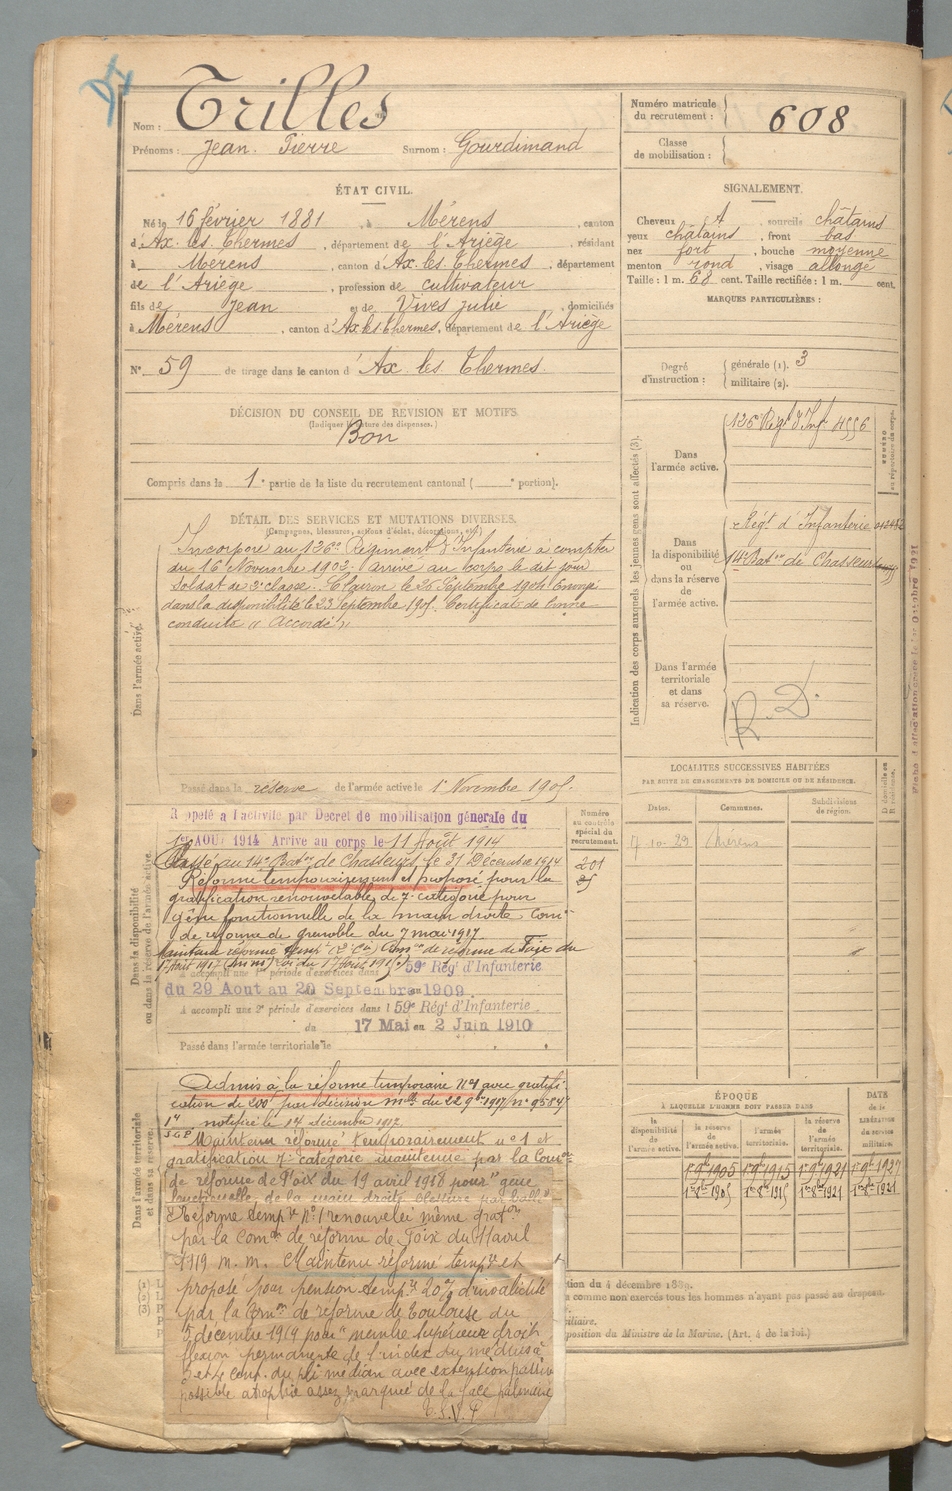 Nom : Trilles
Prénoms : Jean. Pierre Surnom : Gourdimand
Numéro matricule du recrutement : 608
Classe de mobilisation :
ÉTAT CIVIL.
Né le 16 février 1881, à Mérens, canton
d'Ax. les. Thermes, département de l'Ariège, résidant
à Merens, canton d'Ax. les. Thermes, département
de l'Ariège, profession de cultivateur
fils de Jean et de Vives Julie, domiciliés
à Mérens, canton d'Ax les Thermes, département de l'Ariège
N° 59 de tirage dans le canton d'Ax les Thermes.
SIGNALEMENT.
Cheveux sourcils châtains
yeux châtains, front bas
nez fort, bouche moyenne
menton rond, visage allongé
Taille : 1 m. 68 cent. Taille rectifiée : 1 m. cent.
MARQUES PARTICULIÈRES :
Degré d'instruction : générale (1). 3
militaire (2).
DÉCISION DU CONSEIL DE REVISION ET MOTIFS.
(Indiquer la nature des dispenses.)
Bon
Compris dans la 1e partie de la liste du recrutement cantonal ( e portion).
DÉTAIL DES SERVICES ET MUTATIONS DIVERSES.
(Campagnes, blessures, actions d'éclat, décorations, etc.)
Dans l'armée active.
Incorporé au 126e Régiment d'Infanterie à compter
du 16 Novembre 1902. arrivé au corps le dit jour
Soldat de 2e classe. Clairon le 26 Septembre 1904. Envoyé
dans la disponibilité le 23 Septembre 1905. Certificat de bonne
conduite « Accordé »
Passé dans la réserve de l'armée active le 1er Novembre 1905.
Indication des corps auxquels les jeunes gens sont affectés (3).
Dans l'armée active.
126e Régt d'Infie 4556
Dans la disponibilité ou dans la réserve de l'armée active.
Régt d'Infanterie
14e Baton de Chasseurs
Dans l'armée territoriale et dans sa réserve.
R. D.
LOCALITÉS SUCCESSIVES HABITÉES
PAR SUITE DE CHANGEMENTS DE DOMICILE OU DE RÉSIDENCE.
Dates. Communes. Subdivisions de région.
7-10-29 Mérens
Dans la disponibilité ou dans la réserve de l'armée active.
Numéro au contrôle spécial du recrutement.
201
Rappelé à l'activité par Décret de mobilisation générale du
1er AOUT 1914 Arrivé au corps le 11 Août 1914
Passé au 14e Baton de Chasseurs, le 31 Décembre 1914
Réformé temporairement et proposé pour la
gratification renouvelable de 7e catégorie pour
gêne fonctionnelle de la main droite Comon
de réforme de Grenoble du 7 mai 1917
Maintenu réformé tempre Comon de réforme de Foix du
a accompli une 1re période d'exercices dans 59e Régt d'Infanterie
du 29 Aout au 20 Septembre 1909
A accompli une 2e période d'exercices dans l 59e Régt d'Infanterie
du 17 Mai au 2 Juin 1910
Passé dans l'armée territoriale le
Dans l'armée territoriale et dans sa réserve.
Admis à la réforme temporaire n°1 avec gratifi-
cation de 200f par décision mlle du 22 9bre 1917 n° 9584
notifiée le 14 décembre 1917.
Maintenu réformé temporairement n°1 et
gratification 7e catégorie maintenue par la Comon
de réforme de Foix du 19 avril 1918 pour "gêne
fonctionnelle de la main droite
Réforme tempre n°1 renouvelée même graton
par la Comon de réforme de Foix du 11 avril
1919 m. m. Maintenu réformé tempre et
proposé pour pension tempre 20% d'invalidité
par la Comon de réforme de Toulouse du
5 décembre 1919 pour "membre supérieur droit
flexion permanente de l'index du médius à
cent. du pli médian avec extension passive
possible atrophie assez marquée de la face palmaire
T.S.V.P
ÉPOQUE
À LAQUELLE L'HOMME DOIT PASSER DANS
la disponibilité de l'armée active.
la réserve de l'armée active.
l'armée territoriale.
la réserve de l'armée territoriale.
DATE de la LIBÉRATION du service militaire.
1er 9bre 1905 1er 9bre 1915 1er 9bre 1921 1er 9bre 1927
tion du 4 décembre 1889.
comme non exercés tous les hommes n'ayant pas passé au drapeau.
xiliaire.
position du Ministre de la Marine. (Art. 4 de la loi.)